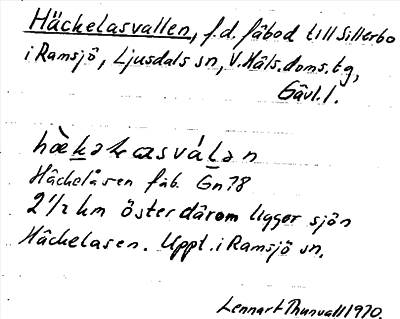 Häckelasvallen, f.d. fäbod till Sillerbo
i Ramsjö, Ljusdals sn, V. Häls. doms. tg,
Gävl. l.
hæ̀kəlasválən
Häckelåsen fäb. Gn 78
2 1/2 km öster därom ligger sjön
Häckelasen. Uppt. i Ramsjö sn.
Lennart Thunvall 1970.